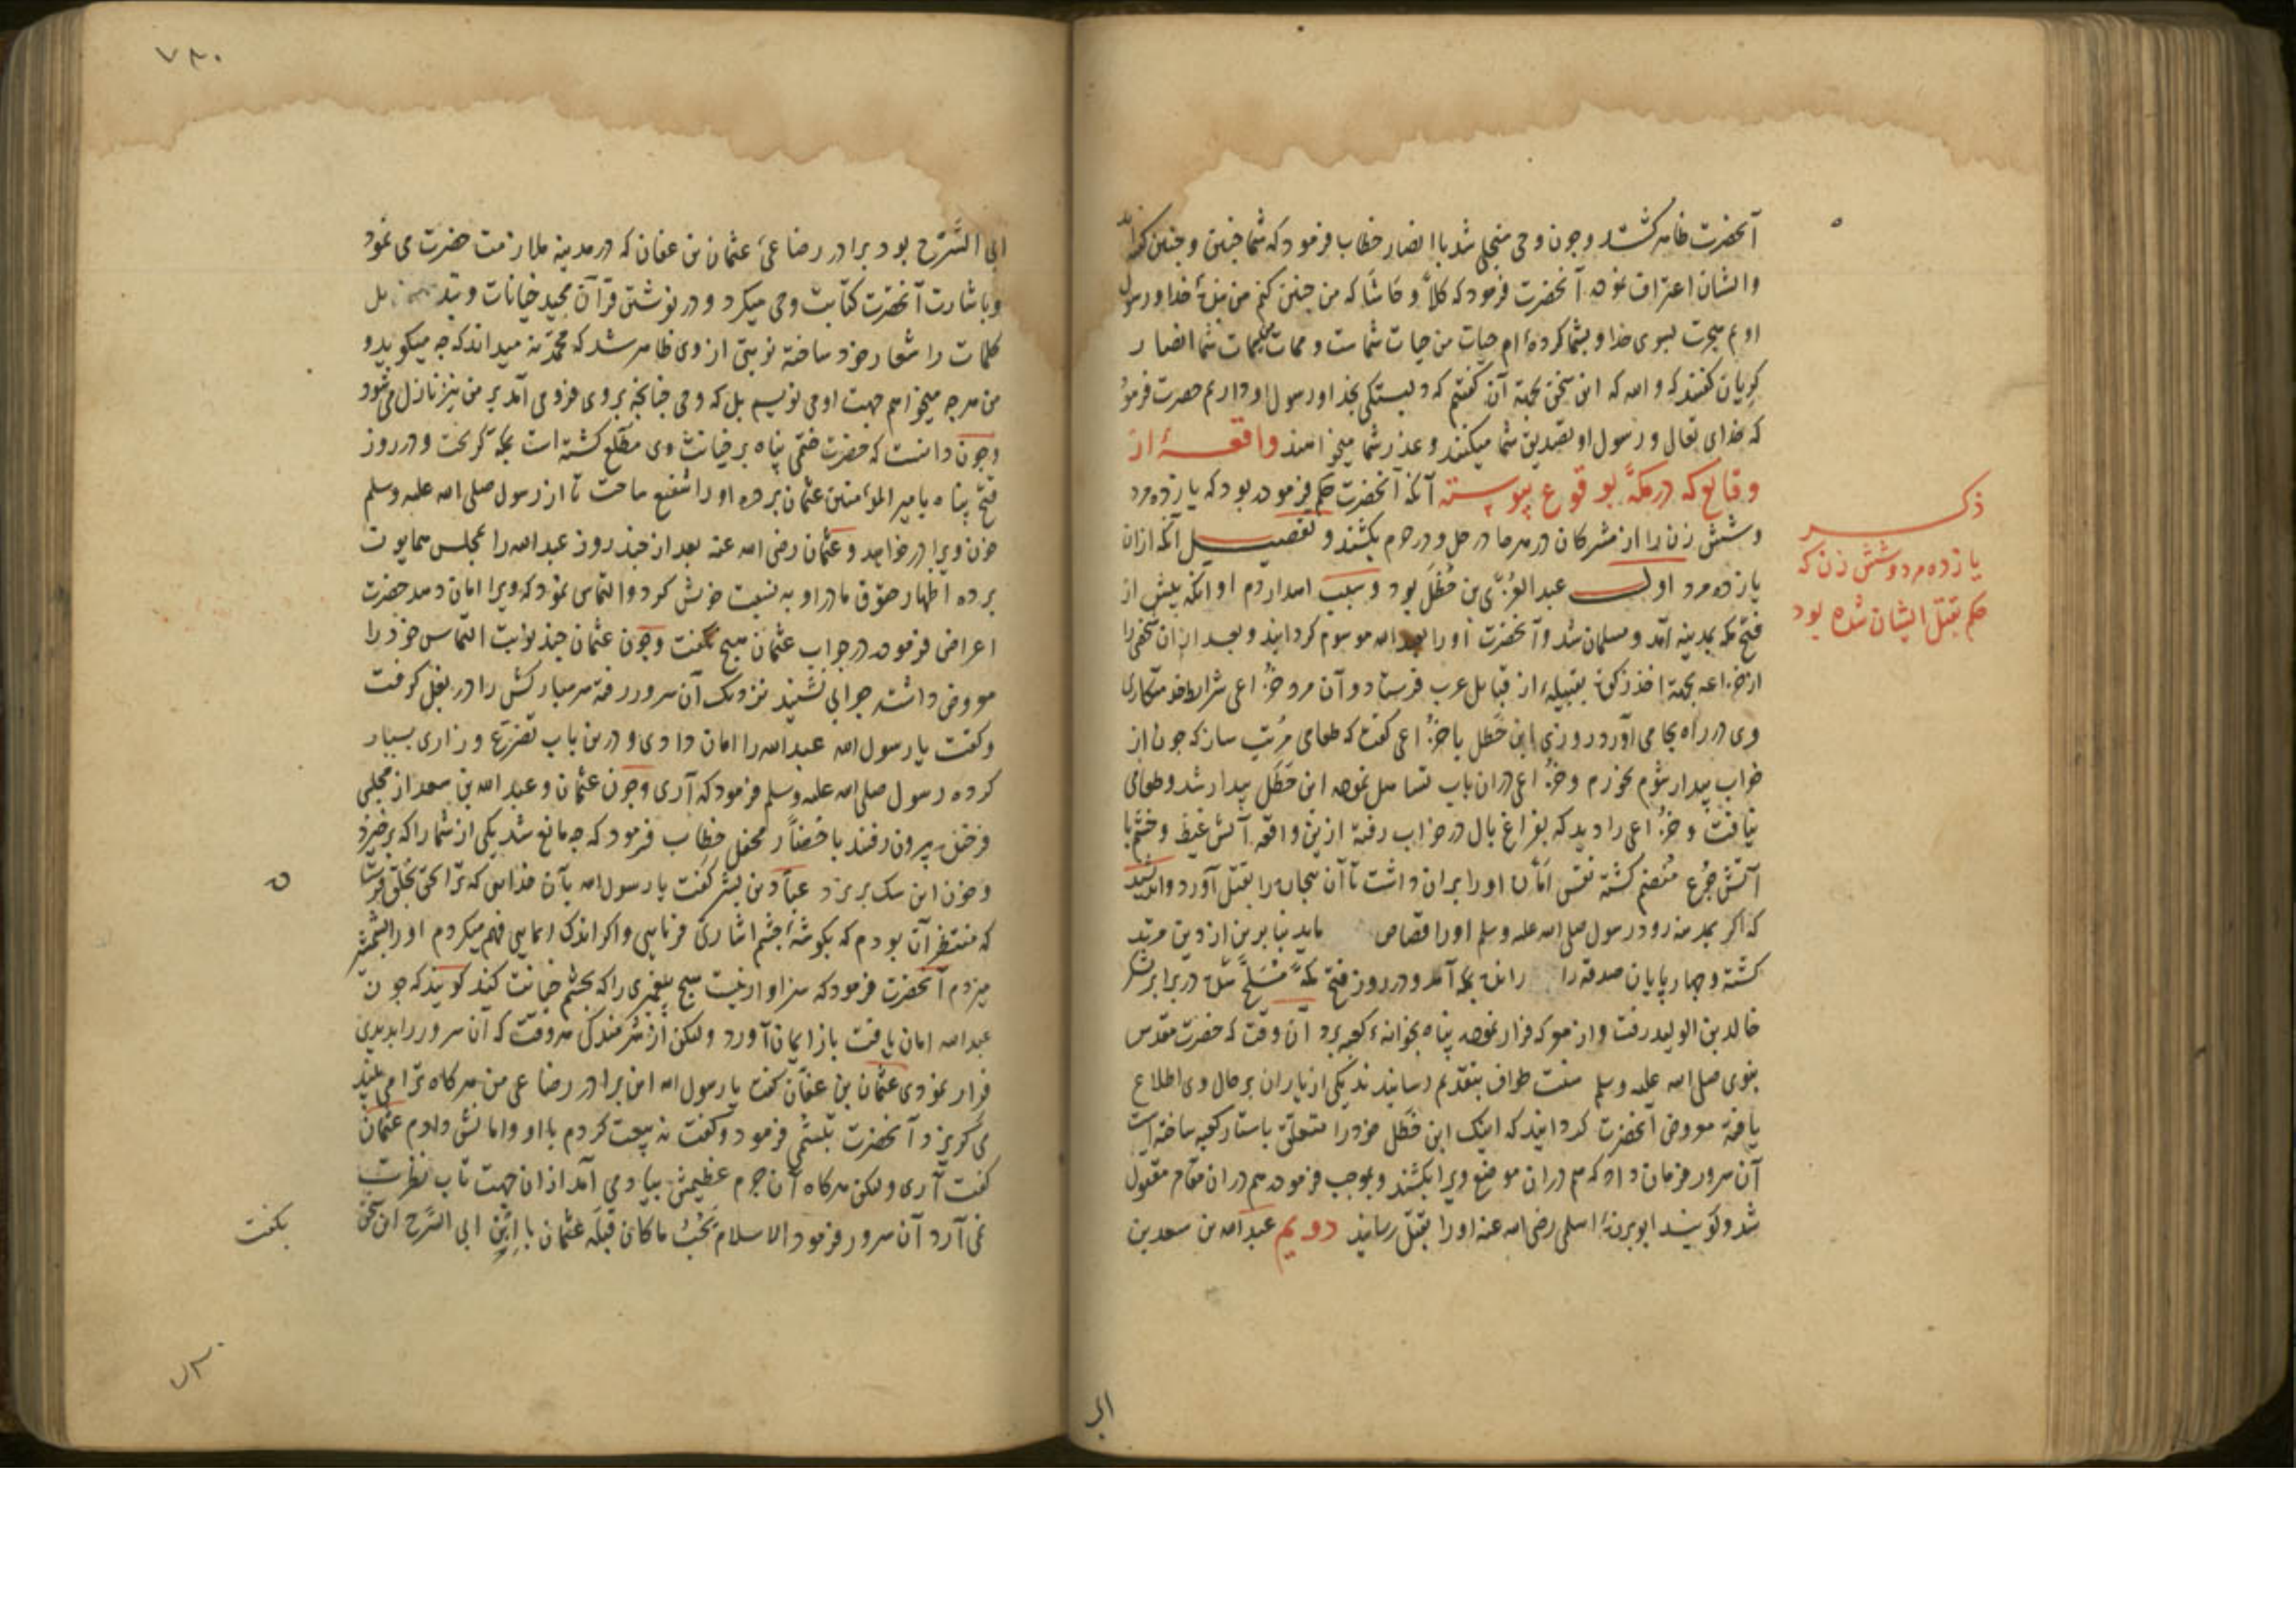 آنحضرت ظاهر گشت و چون وحی منجلی شد با انصار خطاب فرمود که شما چنین و چنین گفته‌اند
و ایشان اعتراف نموده آنحضرت فرمود که کلا و حاشا که من چنین کنم من بنده خدا و رسول
اویم هجرت بسوی خدا و بشما کرده‌ام حیات من حیات شماست و ممات شما انصار
گریان گفتند که والله که این سخن بجهة آن گفتیم که دلبستگی بخدا و رسول او داریم حضرت فرمود
که خدای تعالی و رسول او تصدیق شما میکنند و عذر شما میخواهند واقعهٔ از
وقایع که در مکه بوقوع پیوسته آنکه آنحضرت حکم فرموده بود که یازده مرد
و شش زن را از مشرکان در هرجا در حل و در حرم بکشند و تفصیل آنکه ازان
یازده مرد اول عبد العزی بن خطل بود و سبب اهدار دم او آنکه پیش از
فتح مکه بمدینه آمد و مسلمان شد و آنحضرت او را بعبد الله موسوم گردانید و بعد ازان شخصی را
از خزاعه بجهة اخذ زکوة بقبیلهٔ از قبایل عرب فرستاد و آن مرد خزاعی شرایط خدمتکاری
وی در راه بجا می آورد روزی ابن خطل با خزاعی گفت که طعامی مرتب ساز که چون از
خواب بیدار شوم بخورم و خزاعی دران باب تساهل نموده ابن خطل بیدار شد و طعامی
نیافت و خزاعی را دید که بفراغ بال در خواب رفته ازین واقعه آتش غیظ و خشم با
آتش جوع منضم گشته نفس اماره او را بران داشت تا آن بیچاره را بقتل آورد و اندیشید
که اگر بمدینه رود رسول صلی الله علیه وسلم او را قصاص ماید بنابرین از دین مرتد
گشته و چهار پایان صدقه را رانده بمکه آمد و در روز فتح مکه مسلح شده در برابر لشکر
خالد بن الولید رفت و از معرکه فرار نموده پناه بخانهٔ کعبه برد آن وقت که حضرت مقدس
نبوی صلی الله علیه وسلم سنت طواف بتقدیم رسانیدند یکی از یاران بر حال وی اطلاع
یافته معروض آنحضرت گردانید که اینک ابن خطل خود را متعلق باستار کعبه ساخته است
آن سرور فرمان داد که هم دران موضع ویرا بکشند و بموجب فرموده هم دران مقام مقتول
شد و گویند ابو برزهٔ اسلمی رضی الله عنه او را بقتل رسانید دویم عبد الله بن سعد بن
ذکر
یازده مرد و شش زن که
حکم بقتل ایشان شده بود
ابی
۷۸۰
ابی السرح بود برادر رضاعی عثمان بن عفان که در مدینه ملازمت حضرت می نمود
و باشارت آنحضرت کتابت وحی میکرد و در نوشتن قرآن مجید خیانات و تبدیل
کلمات را شعار خود ساخته نوبتی از وی ظاهر شد که محمد نه میداند که چه میگوید و
من هرچه میخواهم جهت او می نویسم بل که وحی چنانچه بر وی فرو می آمد بر من نیز نازل می شود
و چون دانست که حضرت ختمی پناه بر خیانت وی مطلع گشته است بمکه گریخت و در روز
فتح پناه بامیر المؤمنین عثمان برده او را شفیع ساخت تا از رسول صلی الله علیه وسلم
خون ویرا درخواهد و عثمان رضی الله عنه بعد از چند روز عبد الله را بمجلس همایون
برده اظهار حقوق مادر او به نسبت خویش کرد و التماس نمود که ویرا امان دهد حضرت
اعراض فرموده در جواب عثمان هیچ نگفت و چون عثمان چند نوبت التماس خود را
معروض داشته جوابی نشنید نزدیک آن سرور رفته سر مبارکش را در بغل گرفت
و گفت یا رسول الله عبد الله را امان دادی و درین باب تضرع و زاری بسیار
کرده رسول صلی الله علیه وسلم فرمود که آری و چون عثمان و عبد الله بن سعد از مجلس
فرخنده بیرون رفتند با حضار محفل خطاب فرمود که چه مانع شد یکی از شما را که برخیزد
و خون این سگ بریزد عباد بن بشر گفت یا رسول الله بآن خدایی که ترا بحق بخلق فرستاد
که منتظر آن بودم که بگوشهٔ چشم اشارتی فرمایی و اگر اندک ایمایی فهم میکردم او را بشمشیر
میزدم آنحضرت فرمود که سزاوار نیست هیچ پیغمبری را که بچشم خیانت کند گویند که چون
عبد الله امان یافت باز ایمان آورد ولیکن از شرمندگی هر وقت که آن سرور را بدیدی
فرار نمودی عثمان بن عفان گفت یا رسول الله این برادر رضاعی من هرگاه ترا می بیند
می گریزد آنحضرت تبسمی فرمود و گفت نه بیعت کردم با او و امانش دادم عثمان
گفت آری ولیکن هرگاه آن جرم عظیمش بیاد می آمد ازان جهت تاب نظرت
نمی آرد آن سرور فرمود الاسلام یجب ما کان قبله عثمان با ابن ابی السرح این سخن
بگفت